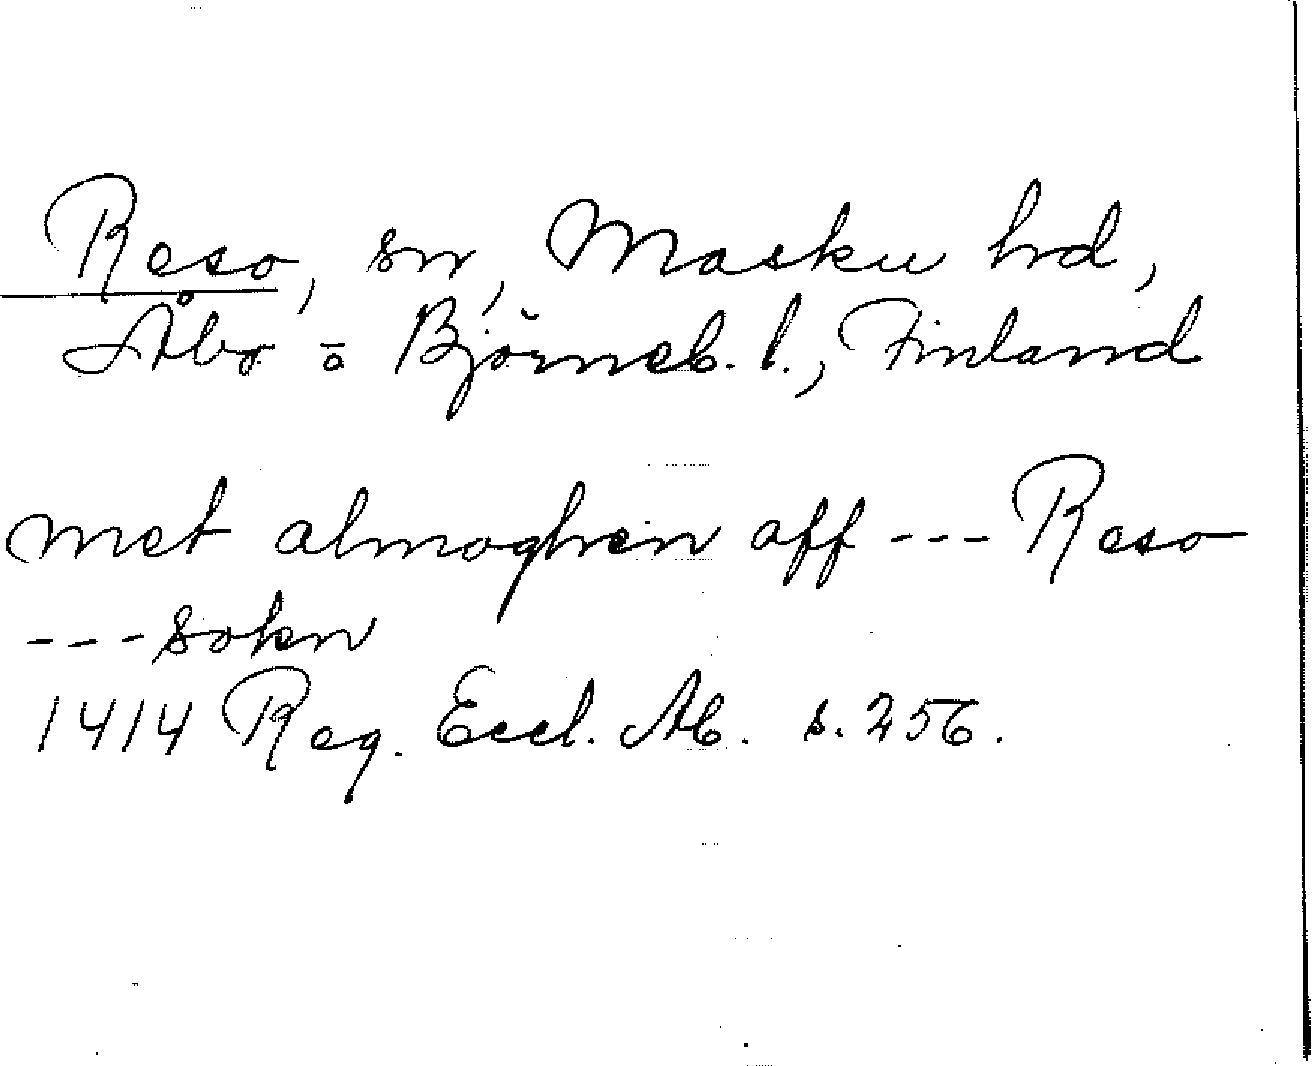 Reso, sn, Masku hd,
Åbo o Björneb. l., Finland
met almoghen aff --- Reso
--- sokn
1414 Reg. Eccl. Ab. s. 256.